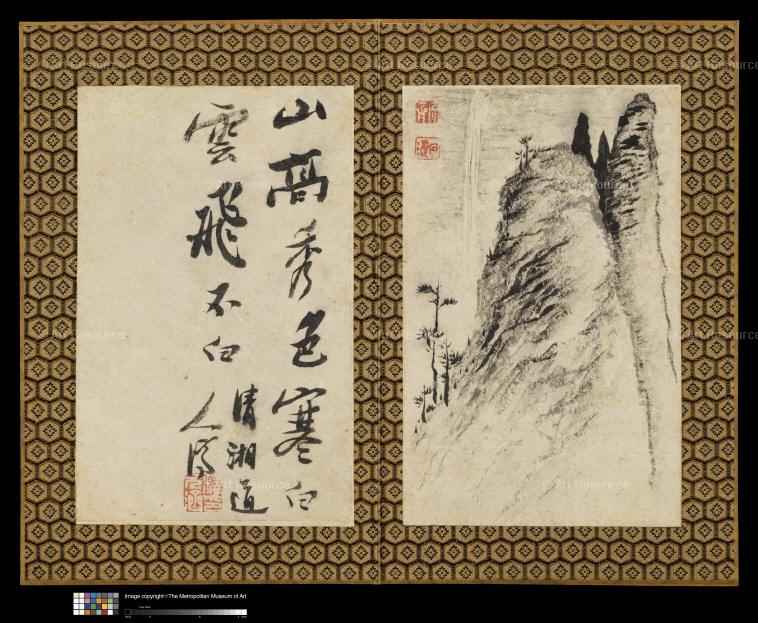 山高秀色寒白
雲飛不白
清湘道
人濟
Image copyright © The Metropolitan Museum of Art
© Art Resource